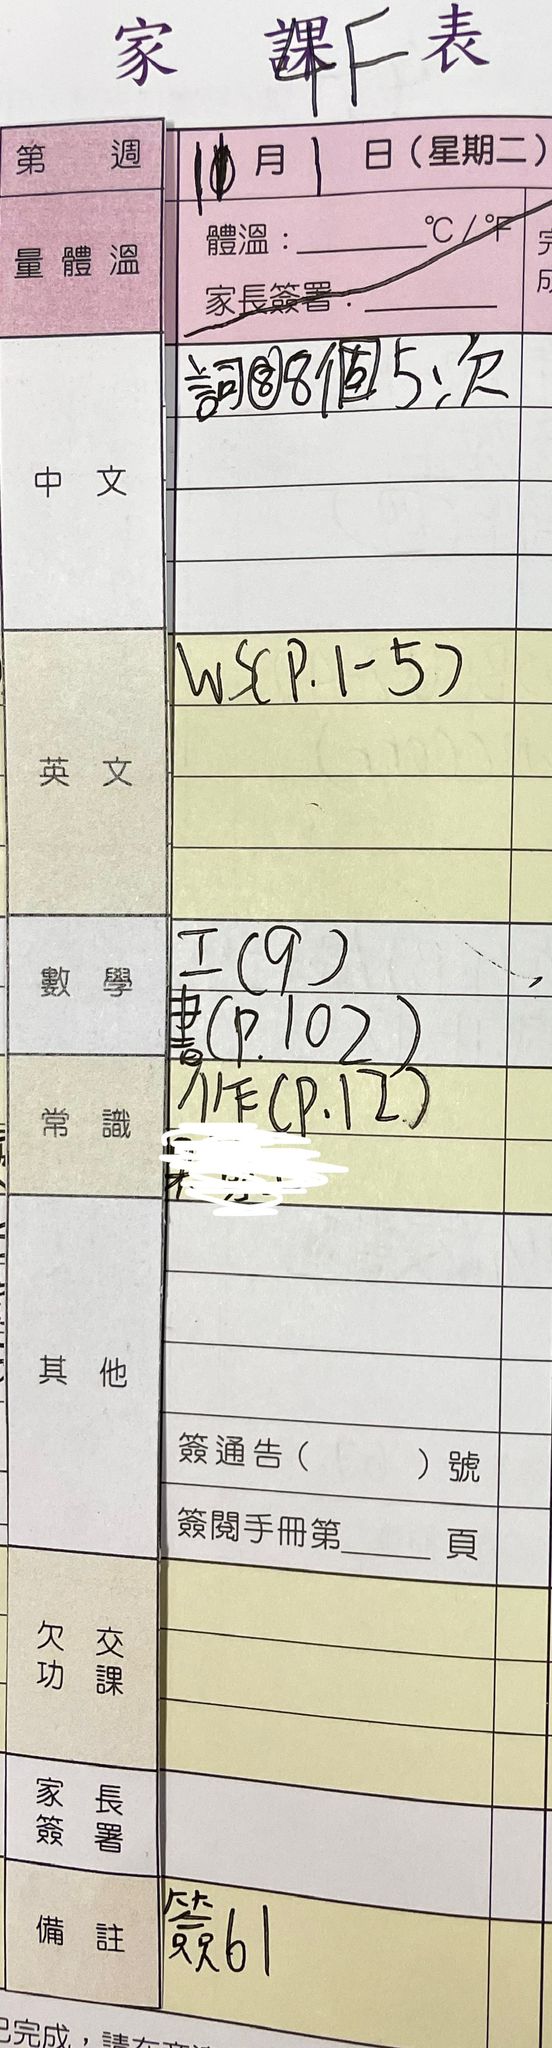 家 課 表
4F
第 週 10月1日(星期二)
量體溫 體溫：______°C/°F 完成
家長簽署：______
中文 詞⑧8個5次
英文 WS(P.1-5)
數學 工(9)
書(p.102)
常識 作(p.12)
其他
簽通告( )號
簽閱手冊第____頁
欠交功課
家長簽署
備註 簽61
已完成，請在